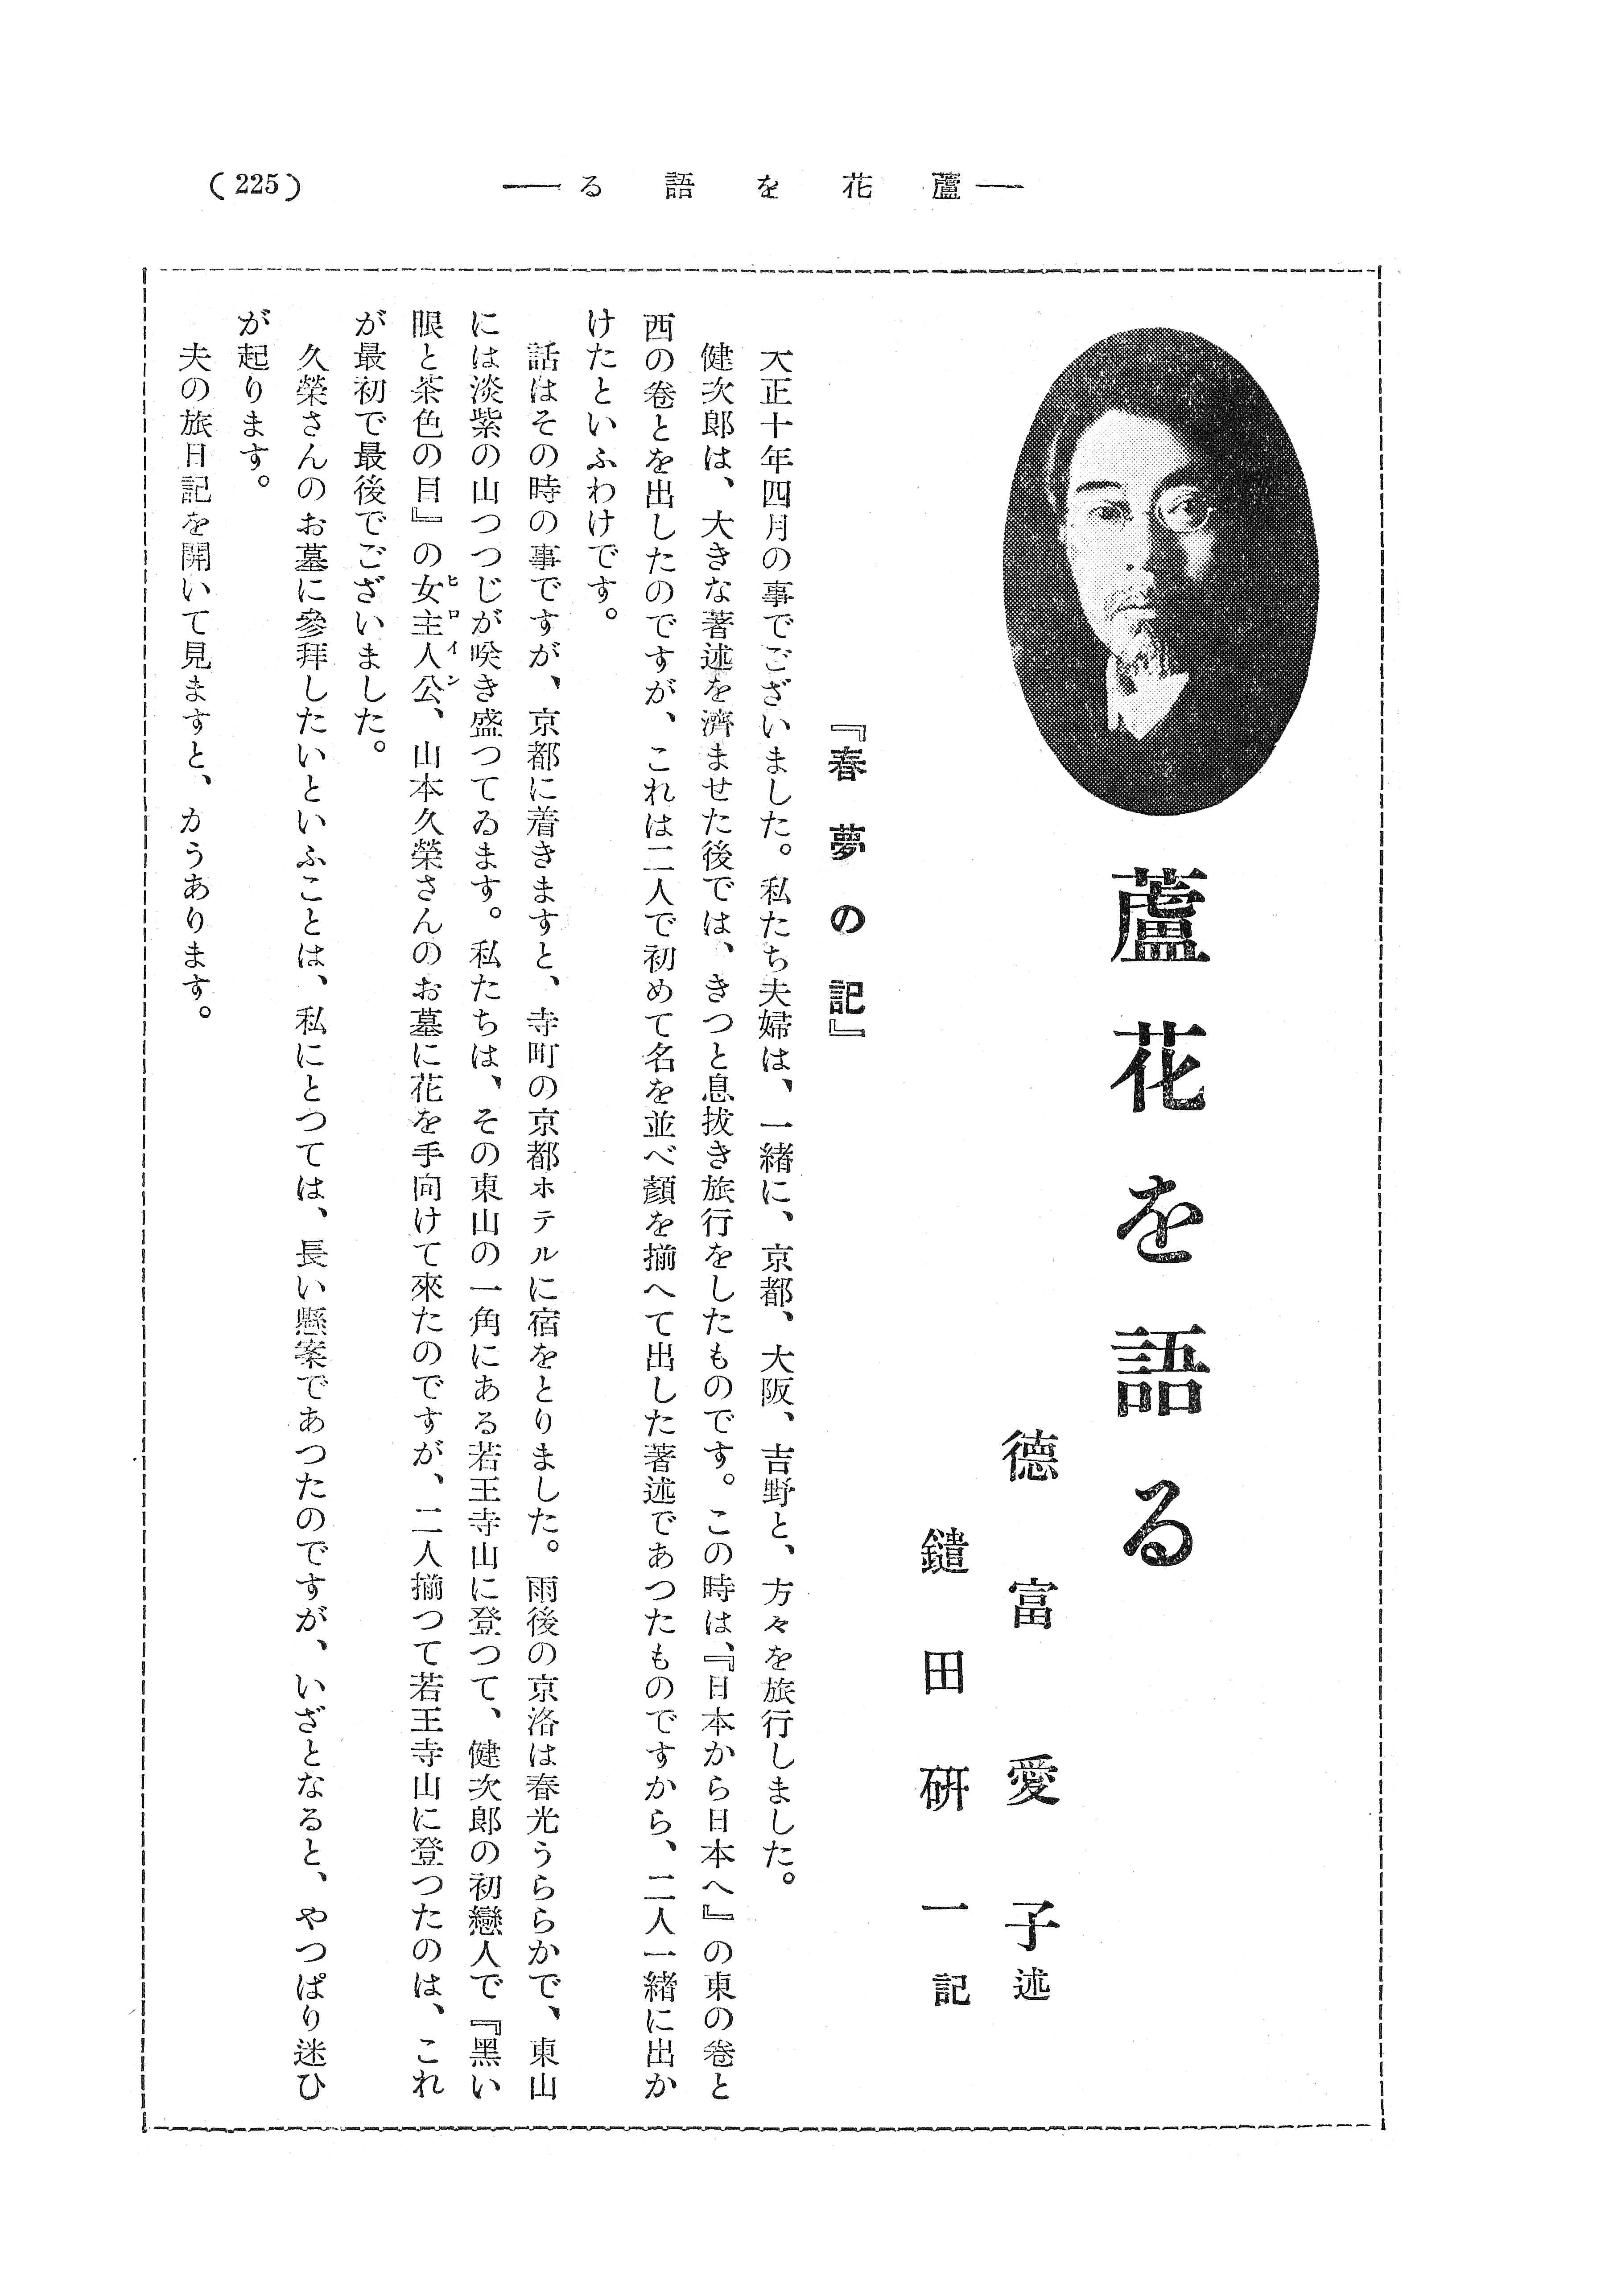 (225)
―蘆花を語る―
蘆花を語る
德富愛子述
鑓田研一記
『春夢の記』
大正十年四月の事でございました。私たち夫婦は、一緒に、京都、大阪、吉野と、方々を旅行しました。
健次郎は、大きな著述を濟ませた後では、きつと息拔き旅行をしたものです。この時は、『日本から日本へ』の東の卷と
西の卷とを出したのですが、これは二人で初めて名を並べ顏を揃へて出した著述であつたものですから、二人一緒に出か
けたといふわけです。
話はその時の事ですが、京都に着きますと、寺町の京都ホテルに宿をとりました。雨後の京洛は春光うららかで、東山
には淡紫の山つつじが咲き盛つてゐます。私たちは、その東山の一角にある若王寺山に登つて、健次郎の初戀人で『黑い
眼と茶色の目』の女主人公、山本久榮さんのお墓に花を手向けて來たのですが、二人揃つて若王寺山に登つたのは、これ
ヒロイン
が最初で最後でございました。
久榮さんのお墓に參拜したいといふことは、私にとつては、長い懸案であつたのですが、いざとなると、やつぱり迷ひ
が起ります。
夫の旅日記を開いて見ますと、かうあります。